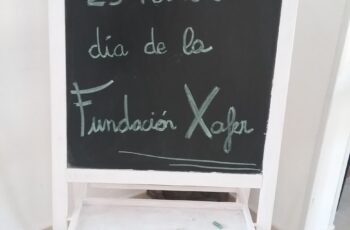 día de la
Fundación Xafer